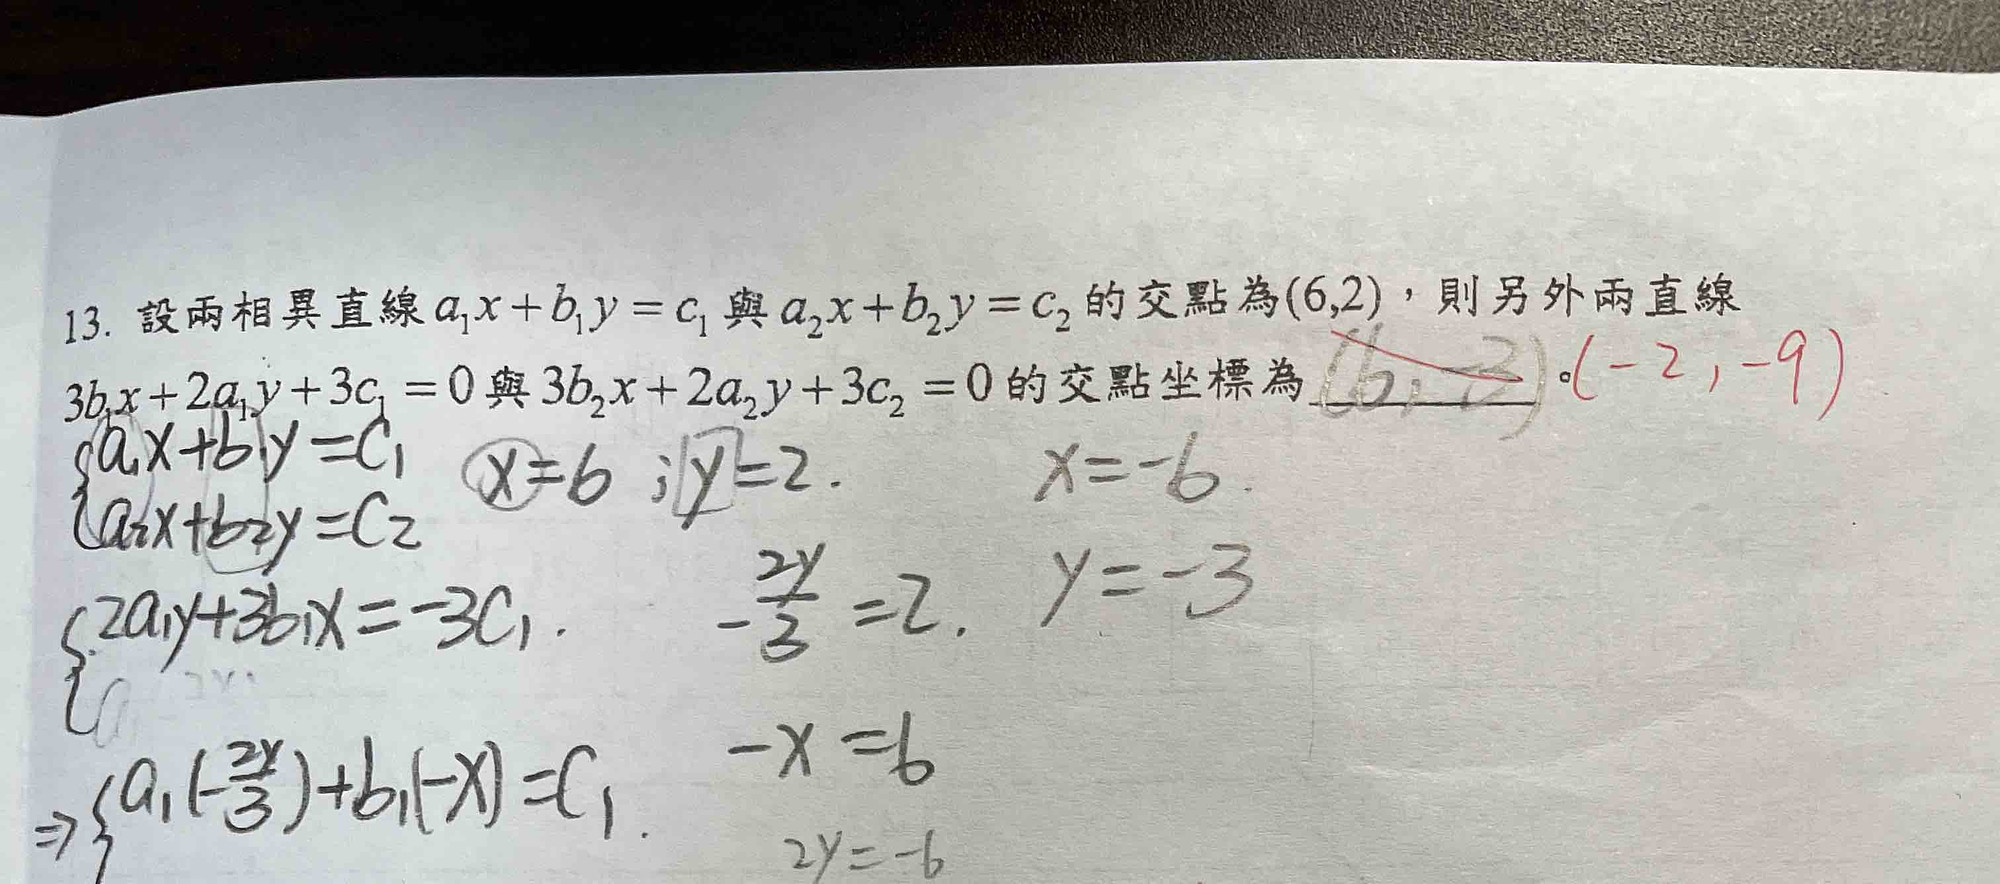 13. 設兩相異直線a₁x+b₁y=c₁與a₂x+b₂y=c₂的交點為(6,2)，則另外兩直線
3b₁x+2a₁y+3c₁=0與3b₂x+2a₂y+3c₂=0的交點坐標為 (6,-3) 。(-2,-9)
{a₁x+b₁y=C₁ x=6 ; y=2. x=-6.
a₂x+b₂y=C₂
{2a₁y+3b₁x=-3C₁. -2y/3=2. y=-3
⇒{a₁(-2y/3)+b₁(-x)=C₁. -x=6
2y=-6